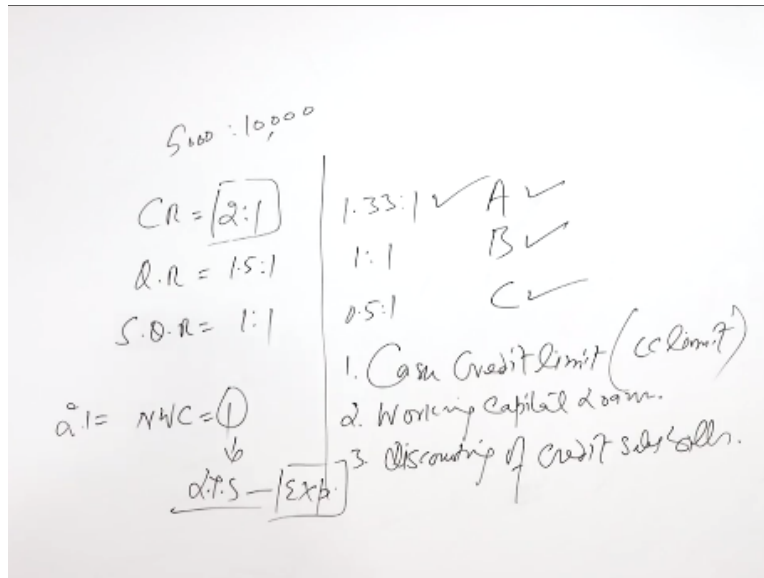 5000 : 10,000
CR = 2:1
Q.R = 1.5:1
S.Q.R = 1:1
2:1 = NWC = 1
L.T.S — Exp.
1.33:1 ✓ A ✓
1:1 B ✓
0.5:1 C ✓
1. Cash Credit limit (CC limit)
2. Working Capital Loan.
3. Discounting of Credit Sales bills.